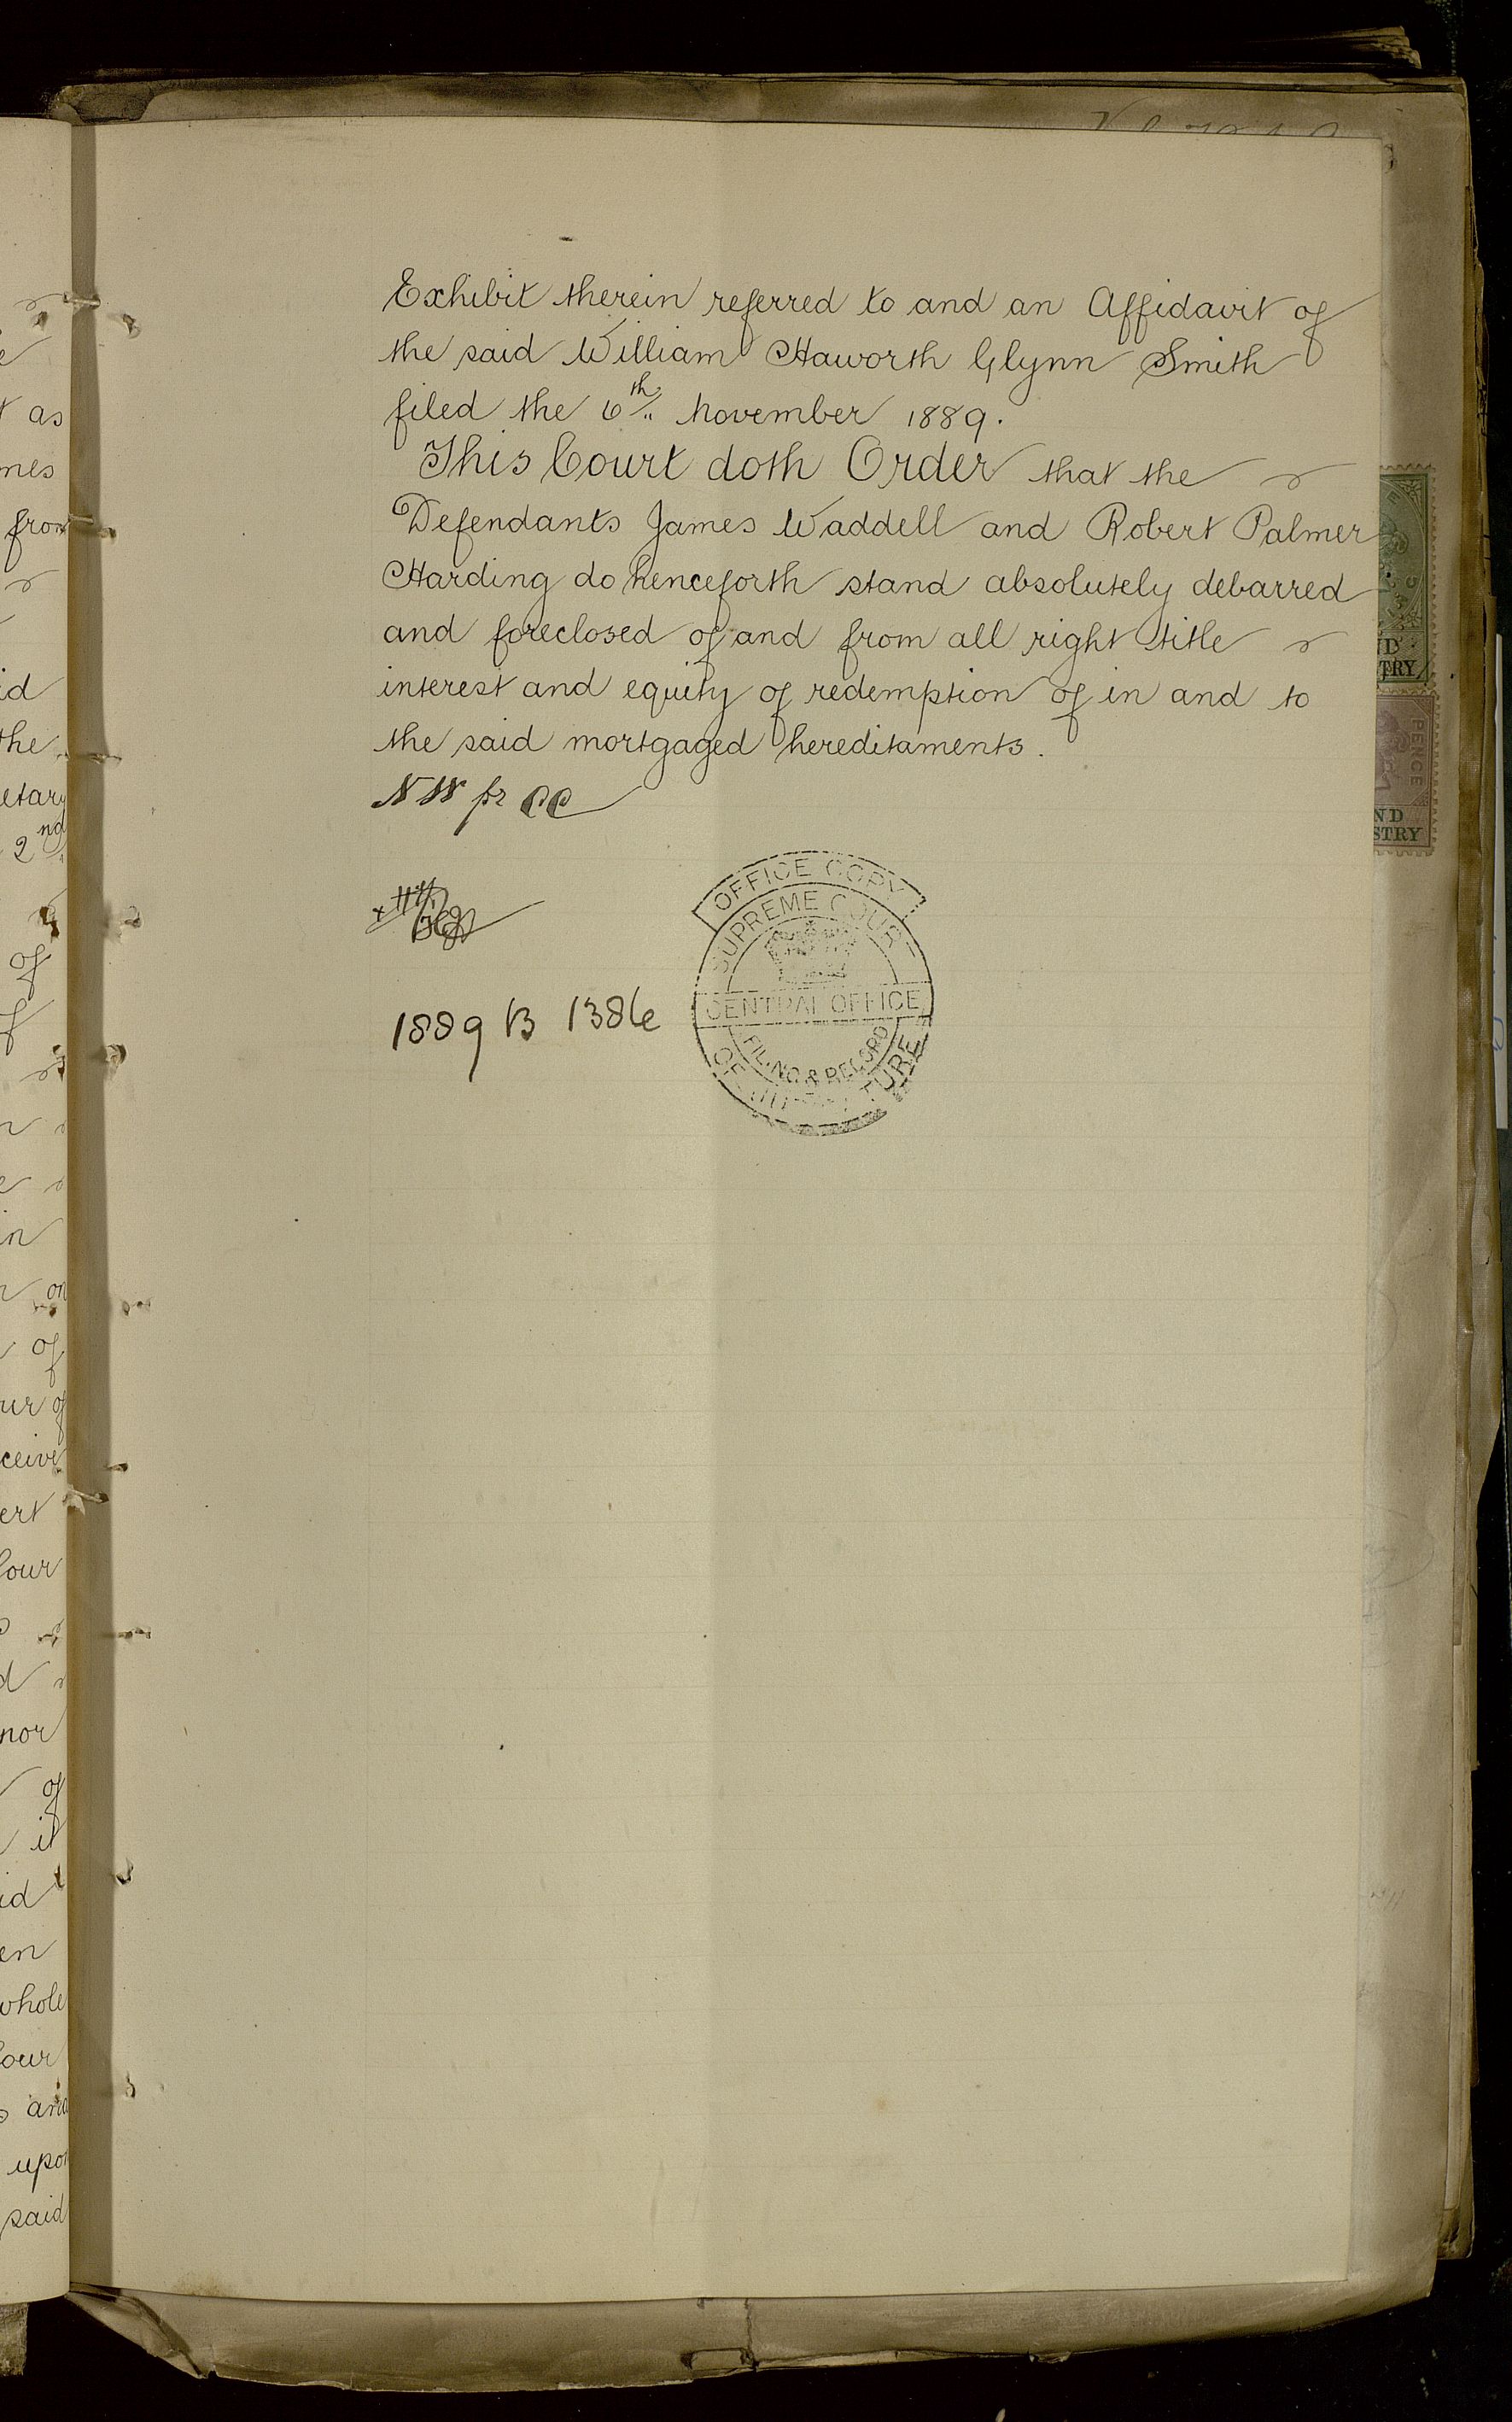 Exhibit therein referred to and an Affidavit of
the said William Haworth Glynn Smith
filed the 6th November 1889.
This Court doth Order that the
Defendants James Waddell and Robert Palmer
Harding do henceforth stand absolutely debarred
and foreclosed of and from all right title
interest and equity of redemption of in and to
the said mortgaged hereditaments.
OFFICE COPY
SUPREME COURT
CENTRAL OFFICE
FILING & RECORD
OF JUDICATURE
1889 B 1386
as
from
the
2nd
of
in
on
of
of
it
upon
said
PENCE